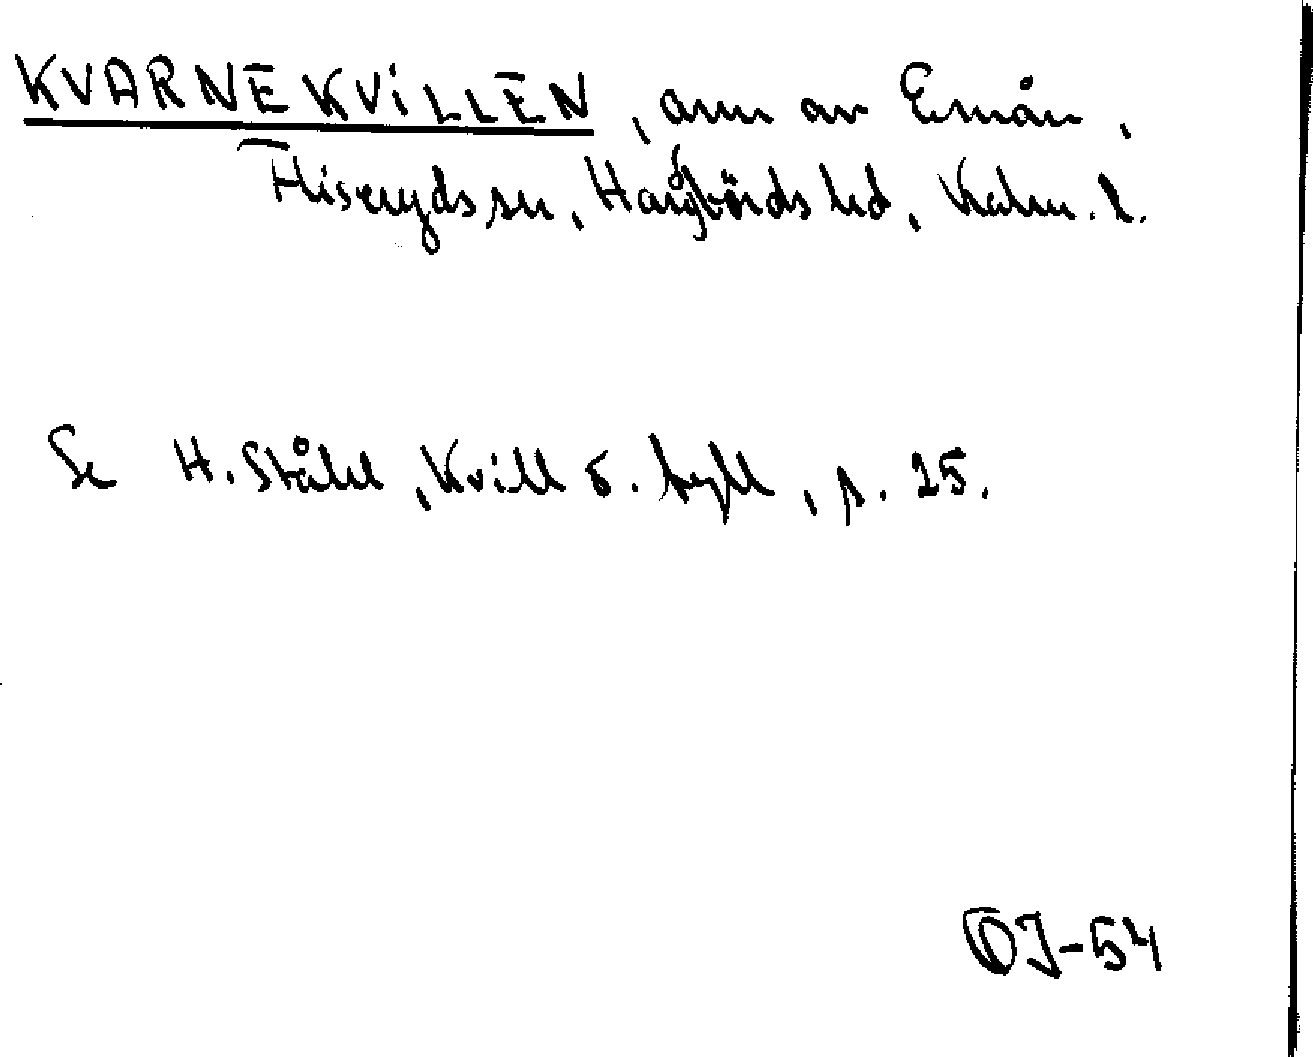 KVARNEKVILLEN, arm av Emån,
Fliseryds sn, Handbörds hd, Kalm. l.
Se H. Ståhl, Kvill o. tyll, s. 25.
OJ-54